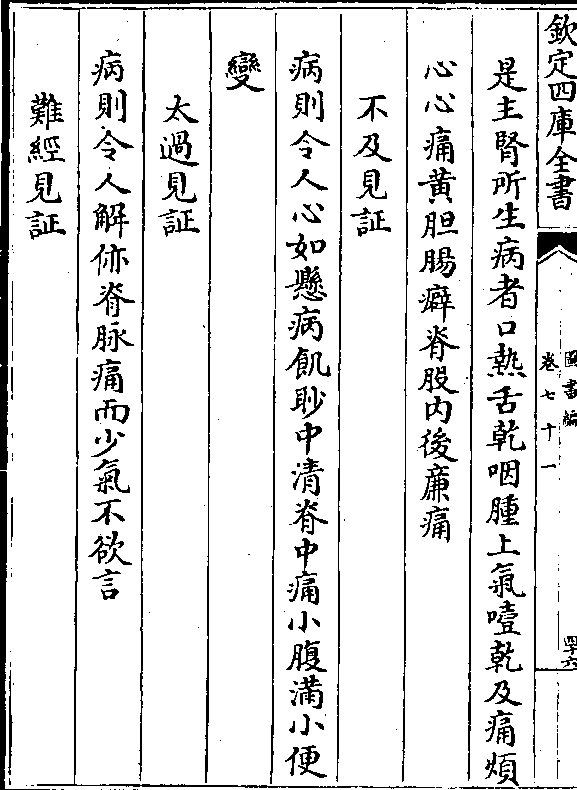 欽定四庫全書
圖書編
卷七十一
四十六
是主腎所生病者口熱舌乾咽腫上氣噎乾及痛煩
心心痛黄胆腸癖脊股内後廉痛
不及見証
病則令人心如懸病飢䏚中清脊中痛小腹滿小便
變
太過見証
病則令人解㑊脊脉痛而少氣不欲言
難經見証